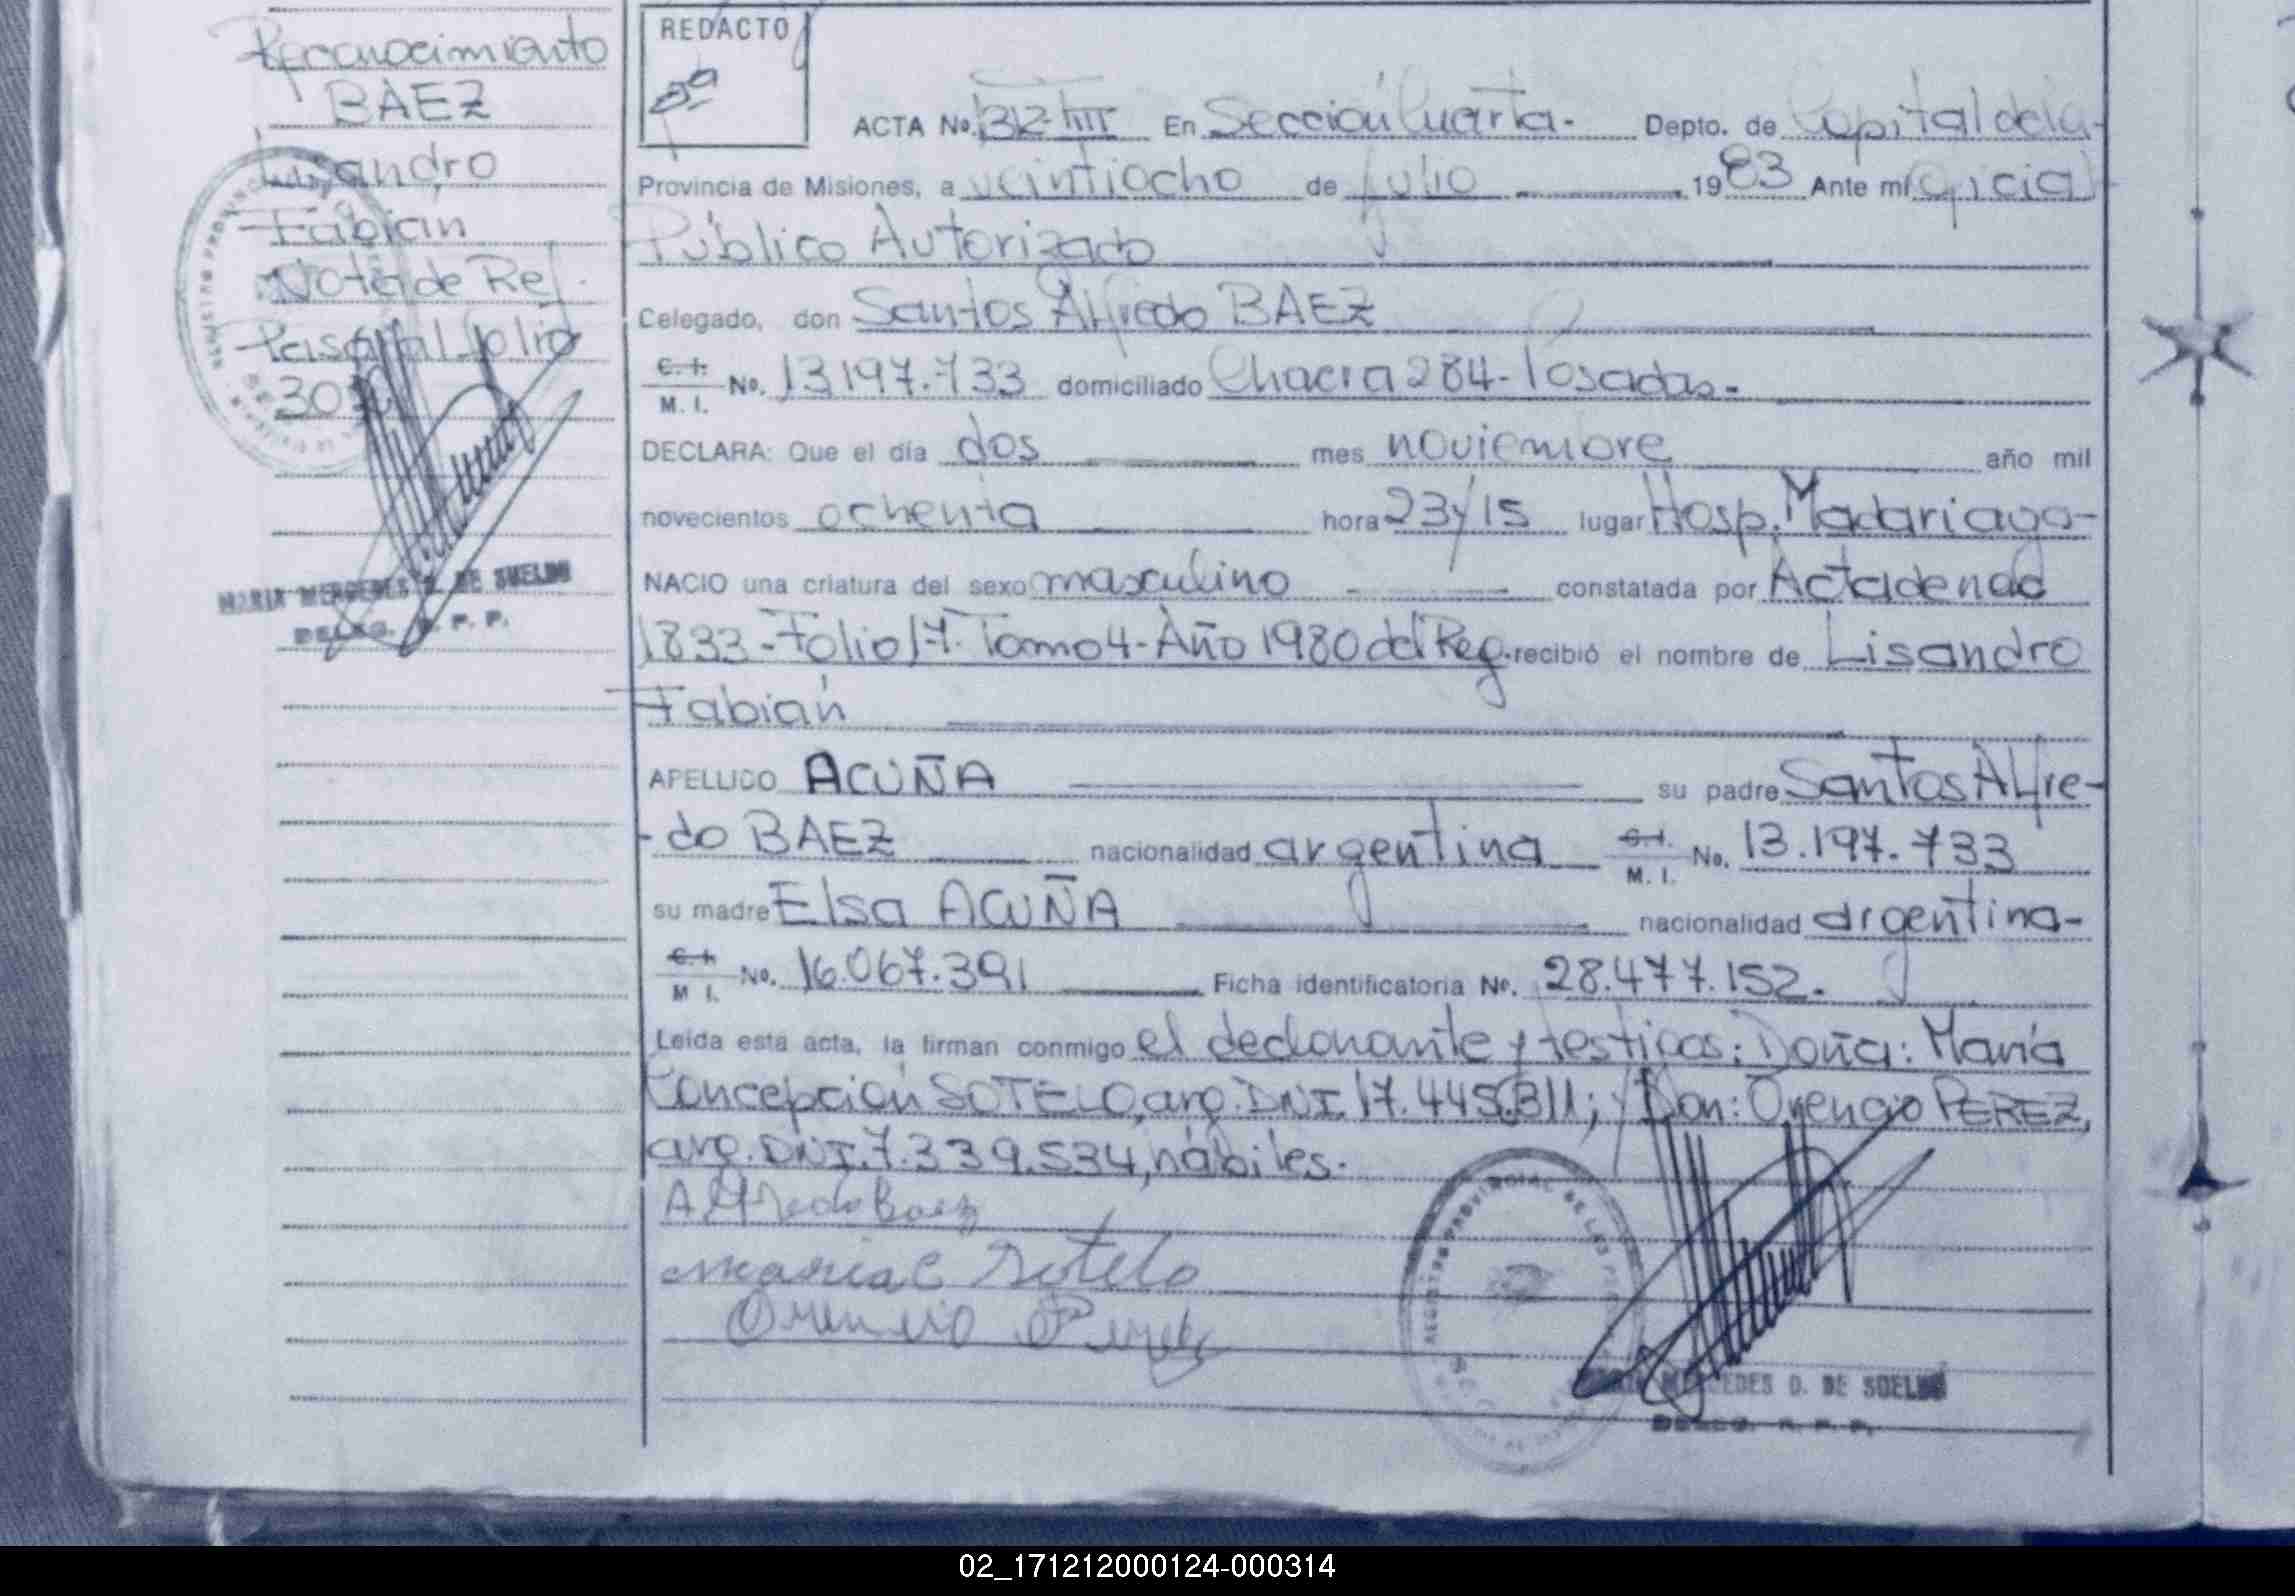 Reconocimiento
BAEZ
Lisandro
Fabián
Nota de Ref.
Pasó al folio
30
MARIA MERCEDES D. DE SUELDO
DELEG. R. P. P.
REDACTO
ACTA No. 132-III En Sección Cuarta. Depto. de Capital de la
Provincia de Misiones, a veintiocho de julio 1983 Ante mí Oficial
Público Autorizado
Celegado, don Santos Alfredo BAEZ
C. I. M. I. No. 13.197.733 domiciliado Chacra 284- Posadas.-
DECLARA: Que el día dos mes noviembre año mil
novecientos ochenta hora 23y15 lugar Hosp. Madariaga-
NACIO una criatura del sexo masculino constatada por Acta de nac
1833-Folio 17. Tomo 4-Año 1980 del Reg. recibió el nombre de Lisandro
Fabián
APELLIDO ACUÑA su padre Santos Alfre-
-do BAEZ nacionalidad argentina C. I. M. I. No. 13.197.733
su madre Elsa ACUÑA nacionalidad argentina-
C. I. M I. No. 16.067.391 Ficha identificatoria No. 28.477.152.
Leida esta acta, la firman conmigo el declarante y testigos: Doña: María
Concepción SOTELO, arg. DNI. 17.445.311; y Don: Orencio PEREZ,
arg. DNI. 7.339.534, hábiles.
Alfredo Baez
Maria C Sotelo
Orencio Perez
REGISTRO PROVINCIAL DE LAS
MERCEDES D. DE SUELDO
DELEG. R. P. P.
02_171212000124-000314